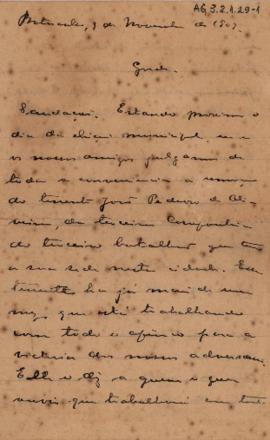 AG 3.2.1.29-1
de Novembro de 1907.
Saudações. Estando proximo o
dia da eleição municipal, eu e
os nossos amigos julgamos de
toda a conveniencia a remoção
do tenente José Pedroso de Oli-
veira, da terceira companhia
do terceiro batalhão que tem
a sua sede nesta cidade. Esse
tenente ha já mais de um
mez que está trabalhando
com todo o afinco para a
victoria dos nossos adversarios.
Elle o diz a quem o quer
ouvir que trabalhará com